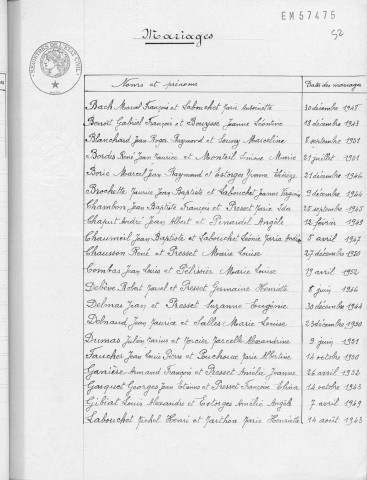 EM57475
52
Mariages
Noms et prénoms Date des mariages
Bach Marcel François et Labouchet Marie Antoinette 30 décembre 1948
Benoit Gabriel François et Bouysse Jeanne Léontine 18 décembre 1943
Blanchard Jean Roger Raymond et Marceline 8 septembre 1951
Bordes René Jean Maurice et Monteil Marie 21 juillet 1951
Borie Marcel Jean Raymond et Estorges Yvonne Thérèse 21 décembre 1946
Brochette Maurice Jean Baptiste et Labouchet Jeanne 9 décembre 1944
Chambon Jean Baptiste François et Presset Marie 25 septembre 1948
Chaput André Jean Albert et Pinardel Angèle 12 février 1949
Chaumeil Jean Baptiste et Labouchet Léonie Maria 8 avril 1947
Chausson René et Presset Marie Louise 27 décembre 1950
Combas Jean Louis et Pélissier Marie Louise 19 avril 1952
Robert Marcel et Presset Germaine Henriette 8 juin 1946
Delmas Jean et Presset Suzanne Eugénie 30 décembre 1944
Delnaud Jean Maurice et Salles Marie Louise 23 décembre 1950
Dumas Julien Marius et Mercier Marcelle Alexandrine 9 juin 1951
Faucher Jean Louis Pierre et Pouchouse Marie Albertine 14 octobre 1950
Ganière Armand François et Presset Amélie Jeanne 26 avril 1952
Gasquet Georges Jean Etienne et Presset Françoise 14 octobre 1943
Gibiat Louis Alexandre et Estorges Amélie Angèle 7 avril 1949
Labouchet Michel Henri et Marthon Marie Henriette 14 août 1943